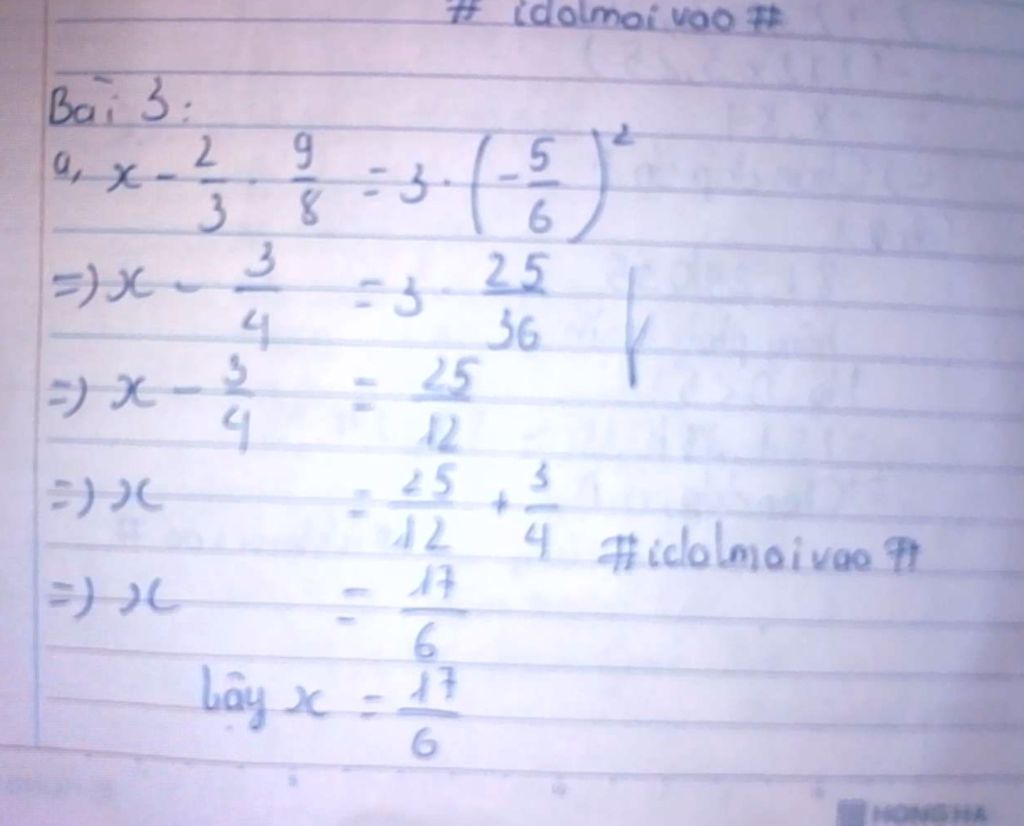 # idolmaivao #
Bài 3:
a, x - 2/3 . 9/8 = 3 . (-5/6)²
=> x - 3/4 = 3 . 25/36
=> x - 3/4 = 25/12
=> x = 25/12 + 3/4
#idolmaivao#
=> x = 17/6
Vậy x = 17/6
HONG HA